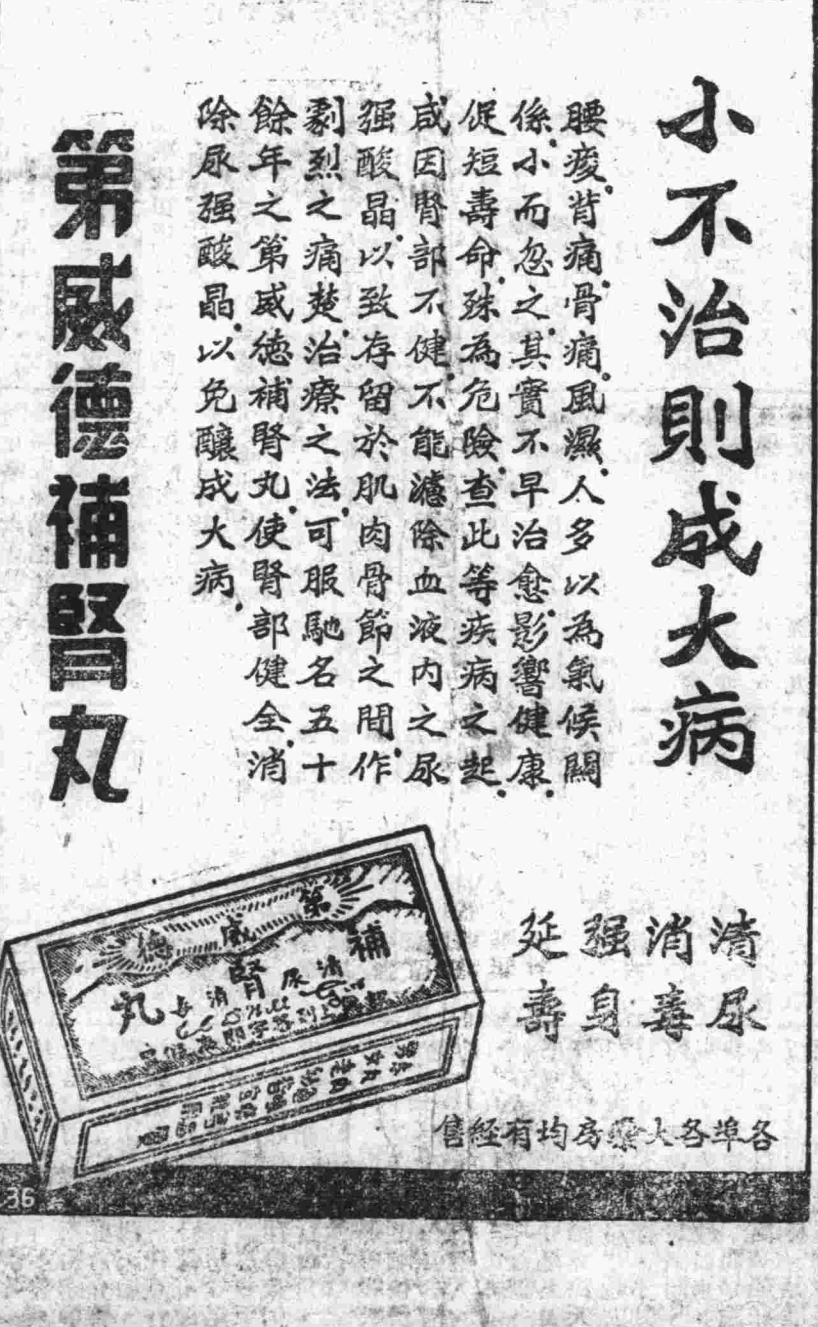 小不治則成大病
腰痠。背痛。骨痛。風濕。人多以為氣候關
係。小而忽之。其實不早治愈。影響健康。
促短壽命。殊為危險。查此等疾病之起。
咸因腎部不健。不能濾除血液內之尿
强酸晶。以致存留於肌肉骨節之間。作
劇烈之痛楚。治療之法。可服馳名五十
餘年之第威德補腎丸。使腎部健全。消
除尿强酸晶。以免釀成大病。
第威德補腎丸
清尿
消毒
强身
延壽
各埠各大藥房均有經售
第威德
補腎丸
36